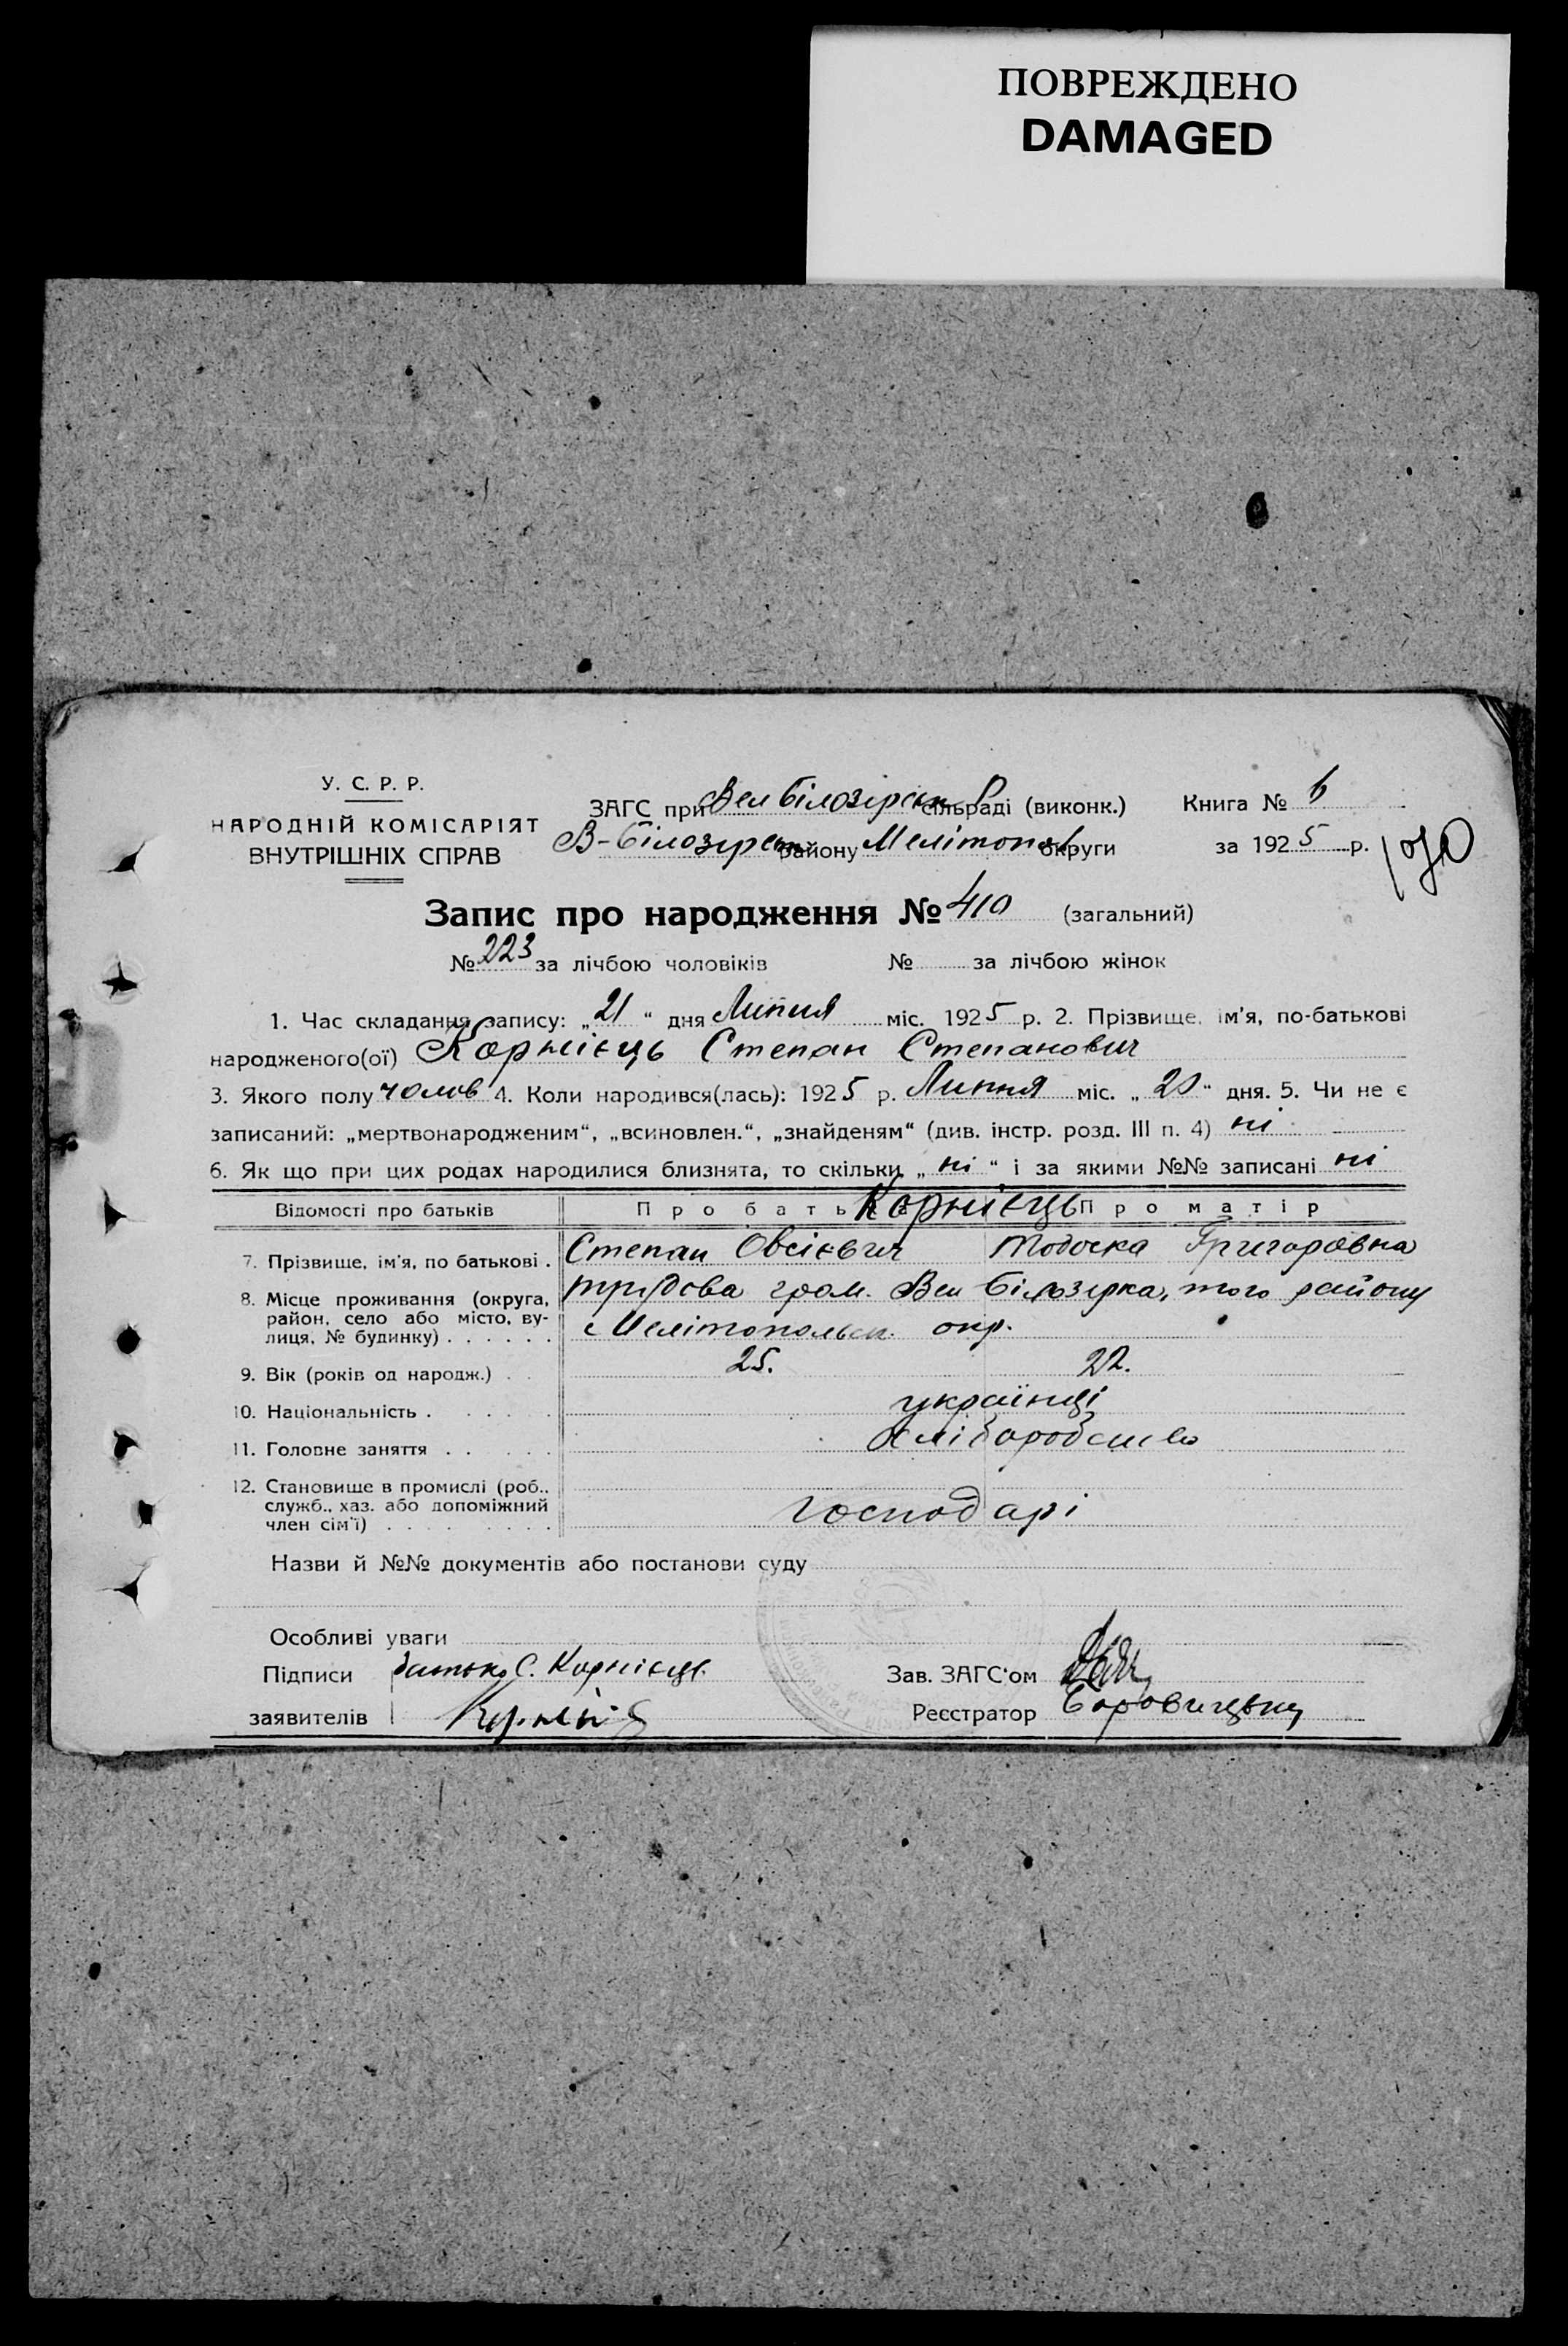 ПОВРЕЖДЕНО
DAMAGED
У. С. Р. Р.
НАРОДНІЙ КОМІСАРІЯТ
ВНУТРІШНІХ СПРАВ
ЗАГС при Вел Білозірськ сільраді (виконк.)
В-Білозирськ району Мелітопол округи
Книга № 6
за 1925 р.
Запис про народження № 410 (загальний)
№ 223 за лічбою чоловіків № за лічбою жінок
1. Час складання запису: „21“ дня Липня міс. 1925 р. 2. Прізвище, ім'я, по-батькові
народженого(ої) Корнієць Степан Степанович
3. Якого полу чолов 4. Коли народився(лась): 1925 р. Липня міс. „20“ дня. 5. Чи не є
записаний: „мертвонародженим“, „всиновлен.“, „знайденям“ (див. інстр. розд. III п. 4) ні
6. Як що при цих родах народилися близнята, то скільки „ні“ і за якими №№ записані ні
Відомості про батьків Про батька Корнієць Про матір
7. Прізвище, ім'я, по батькові . Степан Овсієвич Тодоска Григоровна
8. Місце проживання (округа, район, село або місто, ву- лиця, № будинку) . . . . . . трудова гром. Вел Білозирка, того району
Мелітопольск. окр.
9. Вік (років од народж.) . . 25. 22.
10. Національність . . . . . . українці
11. Головне заняття . . . . . Хліборобство
12. Становище в промислі (роб., служб., хаз. або допоміжний член сім'ї) . . . . . . . . . господарі
Назви й №№ документів або постанови суду
Особливі уваги
Підписи батько С. Корнієць
заявителів
Зав. ЗАГС'ом
Реєстратор